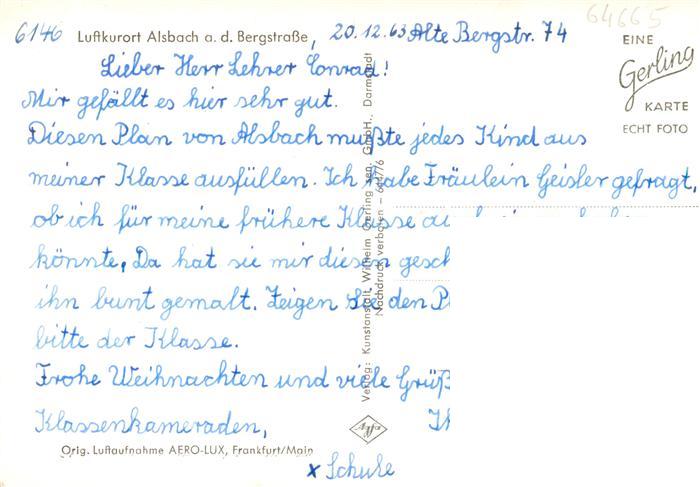 64665
6146 Luftkurort Alsbach a. d. Bergstraße, 20.12.63 Alte Bergstr. 74
Lieber Herr Lehrer Conrad!
Mir gefällt es hier sehr gut.
Diesen Plan von Alsbach mußte jedes Kind aus
meiner Klasse ausfüllen. Ich habe Fräulein Geisler gefragt,
ob ich für meine frühere Klasse
könnte. Da hat sie mir diesen gesch
ihn bunt gemalt. Zeigen Sie den P
bitte der Klasse.
Frohe Weihnachten und viele Grüß
Klassenkameraden,
Orig. Luftaufnahme AERO-LUX, Frankfurt/Main
x Schule
EINE
Gerling
KARTE
ECHT FOTO
Verlag: Kunstanstalt Wilhelm Gerling sen. GmbH., Darmstadt
Nachdruck verboten
Agfa